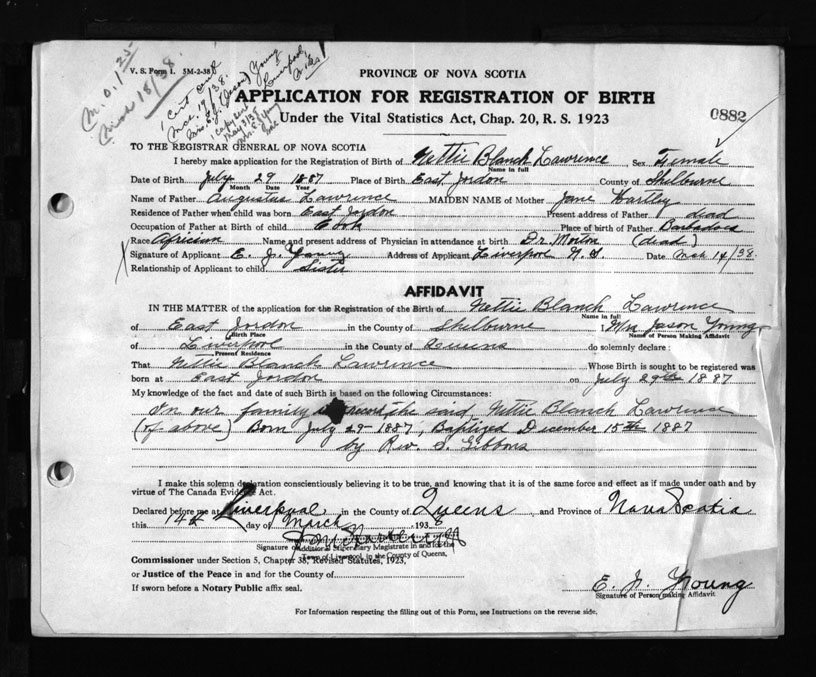 V. S. Form 1. 5M-2-38
M.O. 1 25
Mar 18/38.
Cert sent
Mar. 19/38.
Mrs. E.J. (Jason) Young
Liverpool,
N.S.
PROVINCE OF NOVA SCOTIA
APPLICATION FOR REGISTRATION OF BIRTH
0882
Under the Vital Statistics Act, Chap. 20, R. S. 1923
TO THE REGISTRAR GENERAL OF NOVA SCOTIA
I hereby make application for the Registration of Birth of Nettie Blanch Lawrence, Sex Female
Name in full
Date of Birth July 29 1887 Place of Birth East Jordon County of Shilburne
Month Date Year
Name of Father Augustus Lawrence MAIDEN NAME of Mother Jane Hartley
Residence of Father when child was born East Jordon Present address of Father dead
Occupation of Father at Birth of child Cook Place of birth of Father Barbadoes
Race Africian Name and present address of Physician in attendance at birth Dr. Morton (dead)
X Signature of Applicant E. J. Young Address of Applicant Liverpool N. S. Date Mch 14/38.
Relationship of Applicant to child Sister
AFFIDAVIT
IN THE MATTER of the application for the Registration of the Birth of Nettie Blanch Lawrence
Name in full
of East Jordon in the County of Shilburne I Mrs Jason Young
Birth Place Name of Person Making Affidavit
of Liverpool in the County of Queens do solemnly declare:
Present Residence
That Nettie Blanch Lawrence Whose Birth is sought to be registered was
born at East Jordon on July 29th 1887
My knowledge of the fact and date of such Birth is based on the following Circumstances:
In our family record, the said, Nettie Blanch Lawrence
(of above) Born July 29-1887, Baptized December 15th 1887
by Rev. S. Gibbons
I make this solemn declaration conscientiously believing it to be true, and knowing that it is of the same force and effect as if made under oath and by
virtue of The Canada Evidence Act.
Declared before me at Liverpool in the County of Queens, and Province of Nova Scotia
this 14th day of March 1938
Signature of Additional Stipendiary Magistrate in and for the
Town of Liverpool, in the County of Queens,
Commissioner under Section 5, Chapter 38, Revised Statutes, 1923,
or Justice of the Peace in and for the County of
If sworn before a Notary Public affix seal.
E. J. Young
Signature of Person making Affidavit
For Information respecting the filling out of this Form, see Instructions on the reverse side.